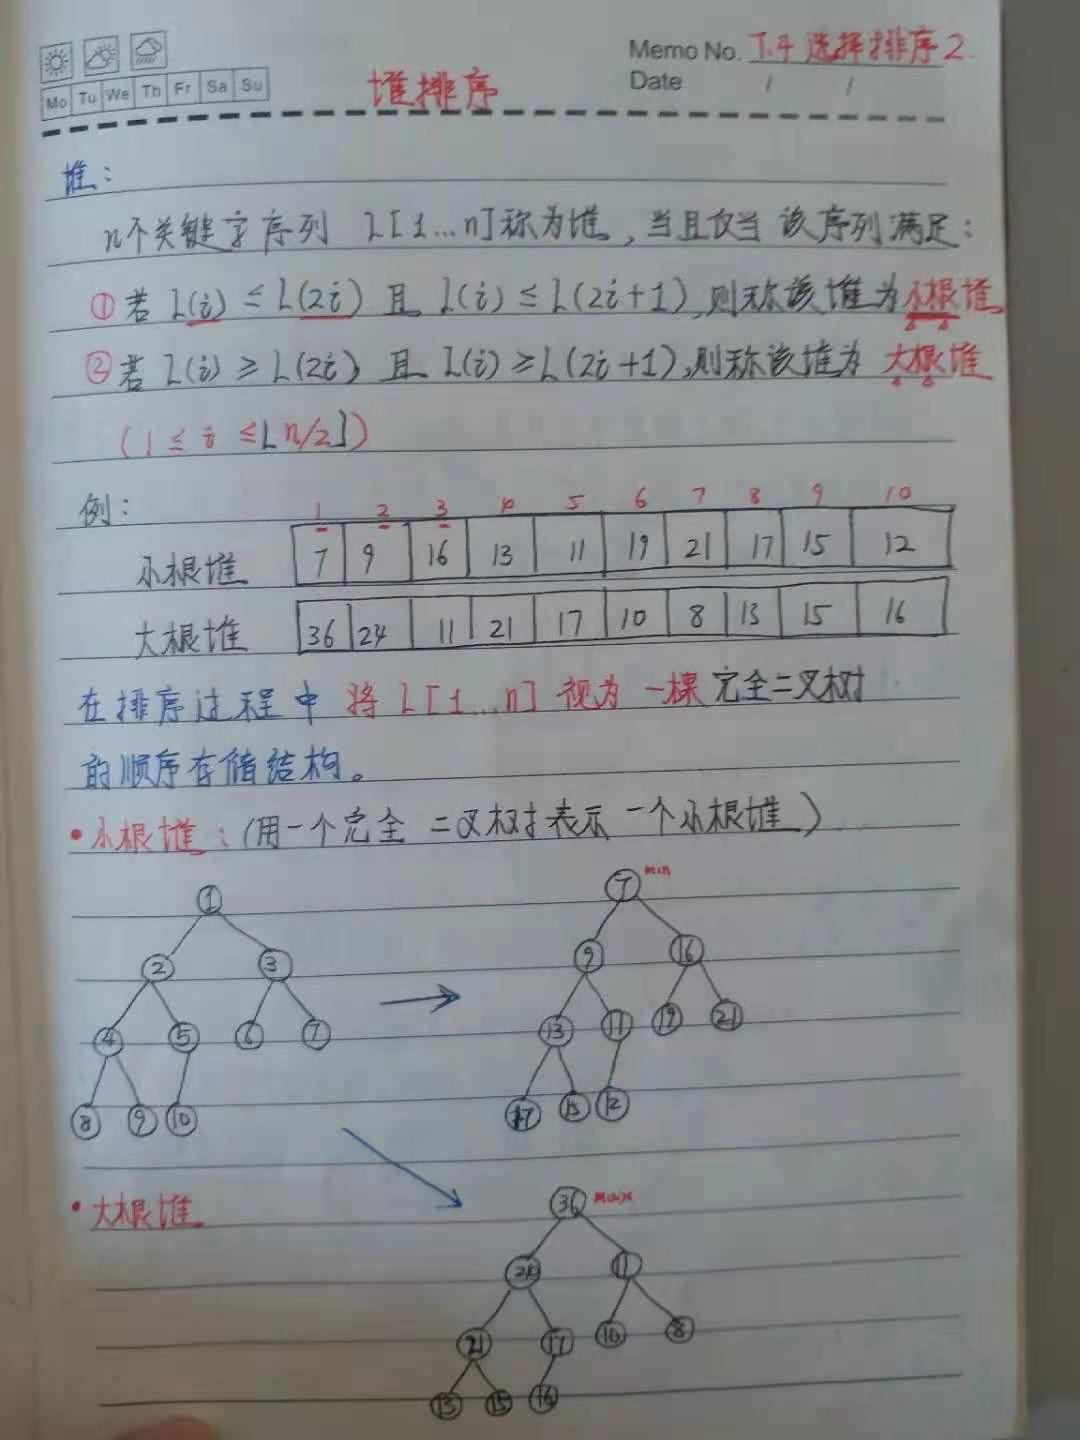 Memo No. 7.4 选择排序2.
Mo Tu We Th Fr Sa Su
Date / /
堆排序
堆:
n个关键字序列 L[1...n]称为堆,当且仅当 该序列满足:
①若 L(i) ≤ L(2i) 且 L(i) ≤ L(2i+1),则称该堆为小根堆
②若 L(i) ≥ L(2i) 且 L(i) ≥ L(2i+1),则称该堆为 大根堆
(1 ≤ i ≤⌊n/2⌋)
例:
1 2 3 4 5 6 7 8 9 10
小根堆 7 9 16 13 11 19 21 17 15 12
大根堆 36 24 11 21 17 10 8 13 15 16
在排序过程中 将 L[1...n] 视为 一棵 完全二叉树
的顺序存储结构。
•小根堆:(用一个完全 二叉树表示 一个小根堆)
1
2 3
4 5 6 7
8 9 10
7 min
9 16
13 11 19 21
17 15 12
•大根堆
36 max
24 11
21 17 10 8
13 15 16